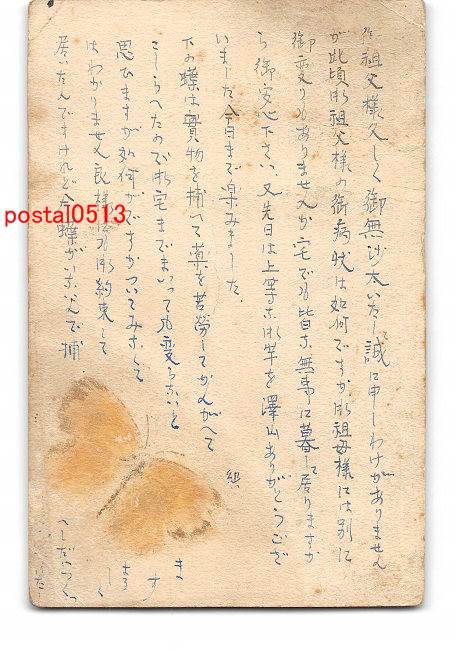 御祖父様久しく御無沙太いたし誠に申しわけがありません
が此頃御祖父様の御病状は如何ですか御祖母様には別に
御変りもありませんか宅でも皆々無事に暮して居りますか
ら御安心下さい、又先日は上等な御芋を澤山ありがとうござ
いました今日まで楽みました、
下の蝶は實物を捕へて薬を苦労してかんがへて
こしらへたので御宅までまいっても変らないと
思ひますが如何がですかついてみなくて
はわかりません良様にも御約束して
居いたんですけれど今蝶が
で捕
postal0513